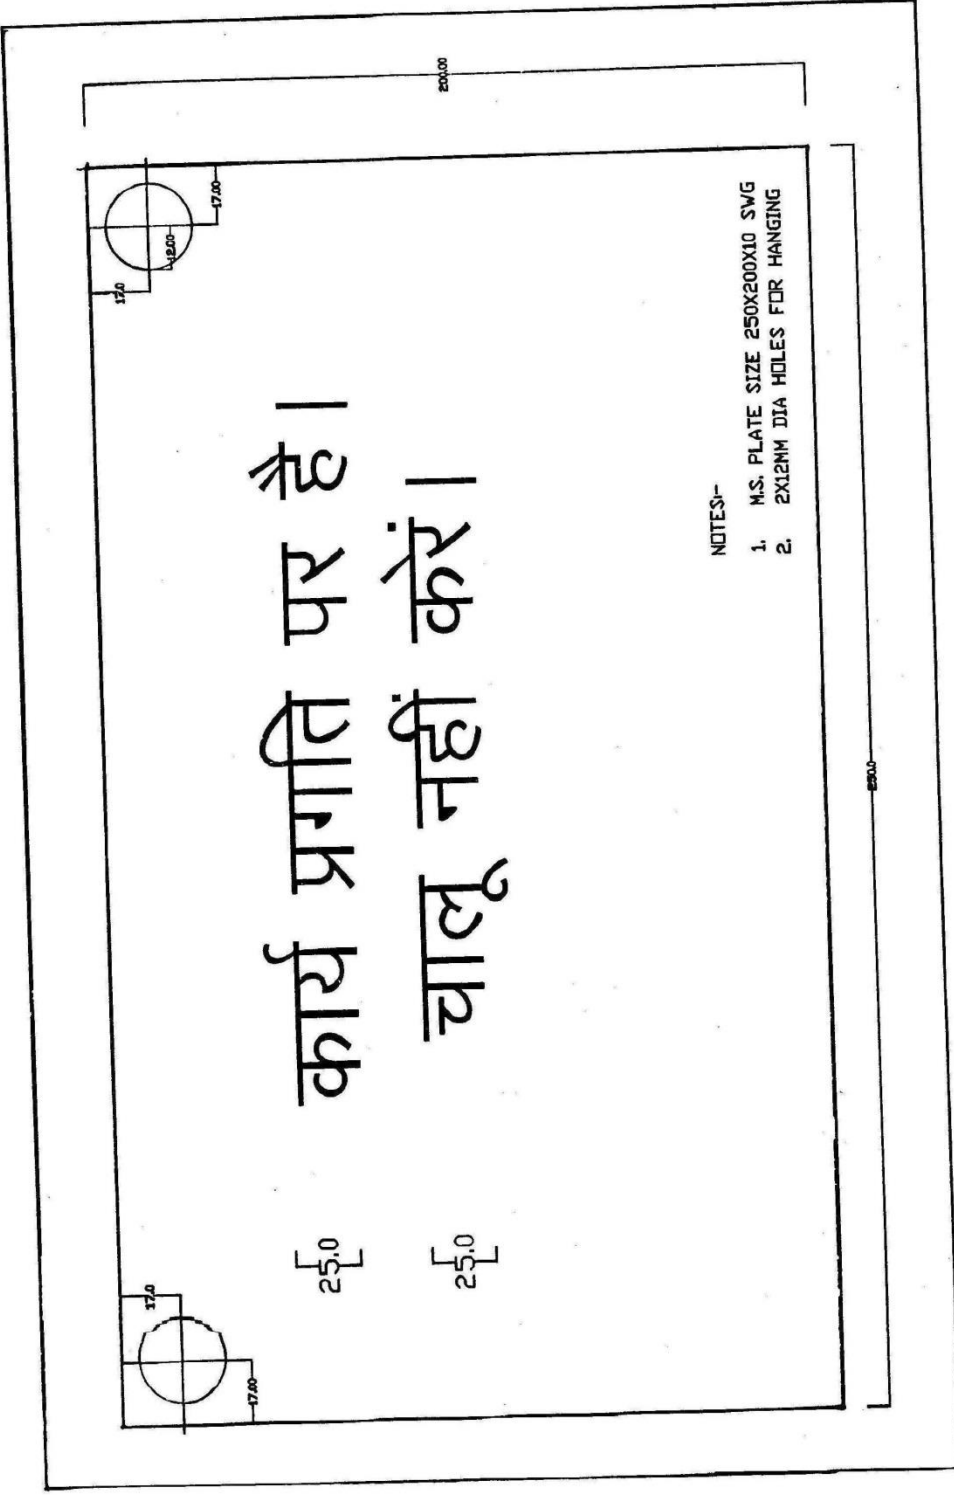 200.00
17.0
17.00
17.0
12.00
17.00
कार्य प्रगति पर है।
25.0
चालू नहीं करें।
25.0
NOTES:-
1. M.S. PLATE SIZE 250X200X10 SWG
2. 2X12MM DIA HOLES FOR HANGING
250.0